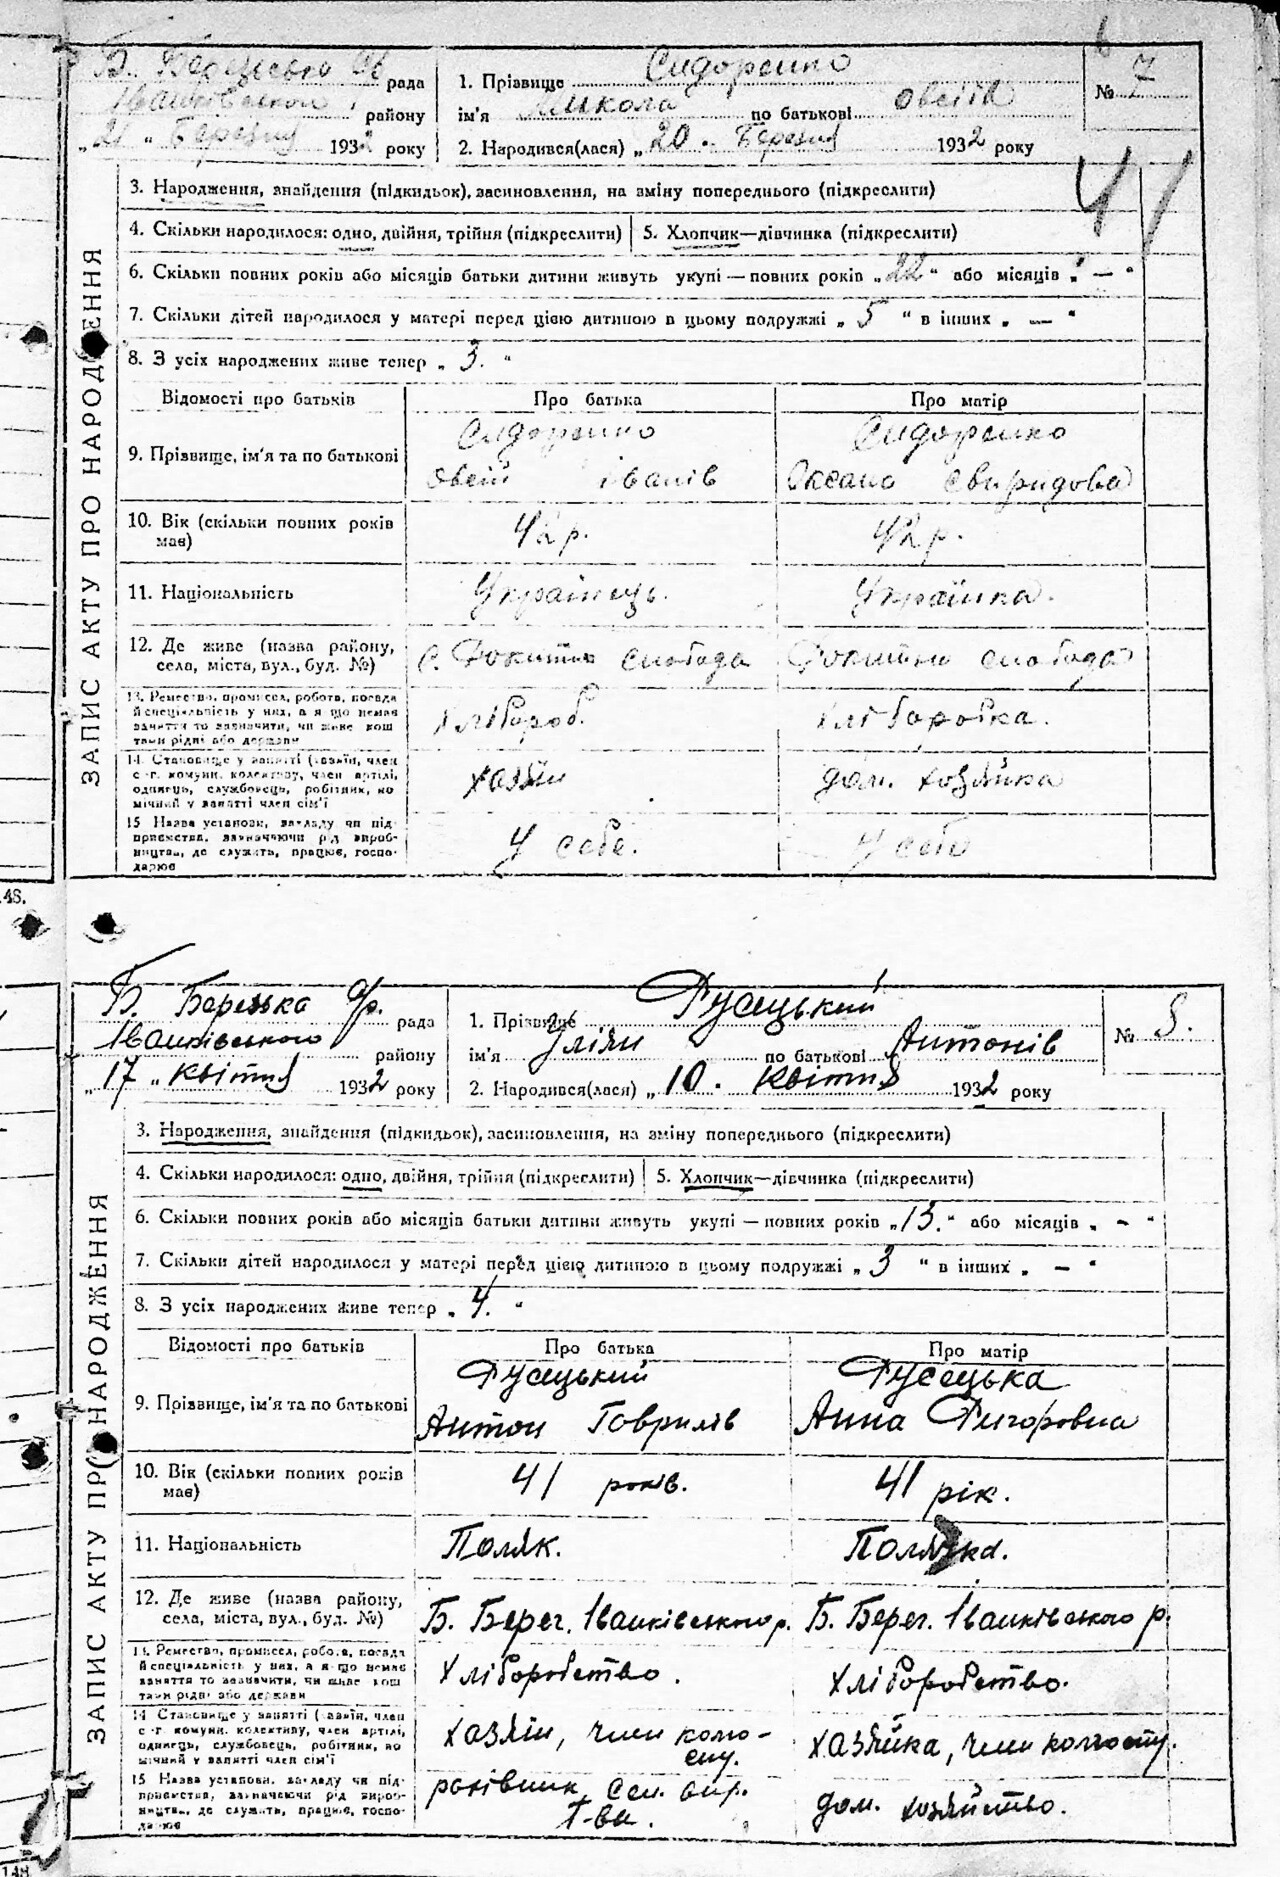 Б. Березьська с/в рада
Іванківського району
„21“ Березня 1932 року
1. Прізвище Сидоренко
ім'я Микола по батькові Овсіїв
2. Народився(лася) „20. Березня 1932 року
№ 7
41
ЗАПИС АКТУ ПРО НАРОДЖЕННЯ
3. Народження, знайдення (підкидьок), засиновлення, на зміну попереднього (підкреслити)
4. Скільки народилося: одно, двійня, трійня (підкреслити) 5. Хлопчик—дівчинка (підкреслити)
6. Скільки повних років або місяців батьки дитини живуть укупі — повних років „22“ або місяців „—“
7. Скільки дітей народилося у матері перед цією дитиною в цьому подружжі „5“ в інших „—“
8. З усіх народжених живе тепер „3.“
Відомості про батьків Про батька Про матір
9. Прізвище, ім'я та по батькові
Сидоренко
Овсій Іванів
Сидоренко
Оксана Свиридова
10. Вік (скільки повних років має) 42 р. 42 р.
11. Національність Українець. Українка.
12. Де живе (назва району,
села, міста, вул., буд. №)
с. слобода слобода
13. Ремество, промисел, робота, посада
й спеціяльність у них, а якщо немає
заняття то зазначити, чи живе кош
тами рідні або держави
Хлібороб. Хліборобка.
14. Становище у занятті (хазяїн, член
с.-г. комуни, колективу, член артілі,
одинець, службовець, робітник, по
мічний у занятті член сім'ї
хазяїн дом. хозяйка
15 Назва установи, закладу чи під-
приємства, зазначаючи рід вироб-
ництва, де служить, працює, госпо-
дарює
У себе. У себе
148.
Б. Березька с/р. рада
Іванківського району
„17“ квітня 1932 року
1. Прізвище Русецький
ім'я Уліян по батькові Антонів
2. Народився(лася) „10. квітня 1932 року
№ 8.
ЗАПИС АКТУ ПРО НАРОДЖЕННЯ
3. Народження, знайдення (підкидьок), засиновлення, на зміну попереднього (підкреслити)
4. Скільки народилося: одно, двійня, трійня (підкреслити) 5. Хлопчик—дівчинка (підкреслити)
6. Скільки повних років або місяців батьки дитини живуть укупі — повних років „13.“ або місяців „-“
7. Скільки дітей народилося у матері перед цією дитиною в цьому подружжі „3“ в інших „—“
8. З усіх народжених живе тепер „4.“
Відомості про батьків Про батька Про матір
9. Прізвище, ім'я та по батькові
Русецький
Антон Гаврилів
Русецька
Анна Григоровна
10. Вік (скільки повних років має) 41 років. 41 рік.
11. Національність Поляк. Полячка.
12. Де живе (назва району,
села, міста, вул., буд. №)
Б. Берег. Іванківського р. Б. Берег. Іванківського р.
13. Ремество, промисел, робота, посада
й спеціяльність у них, а якщо немає
заняття то зазначити, чи живе кош
тами рідні або держави
Хліборобство. Хліборобство.
14 Становище у занятті (хазяїн, член
с.-г. комуни, колективу, член артілі,
одинець, службовець, робітник, по
мічний у занятті член сім'ї
хазяїн, член колго-
спу.
хазяйка, член колгоспу.
15 Назва установи, закладу чи під-
приємства, зазначаючи рід вироб-
ництва, де служить, працює, госпо-
дарює
т-ва.
дом. хозяйство.
148